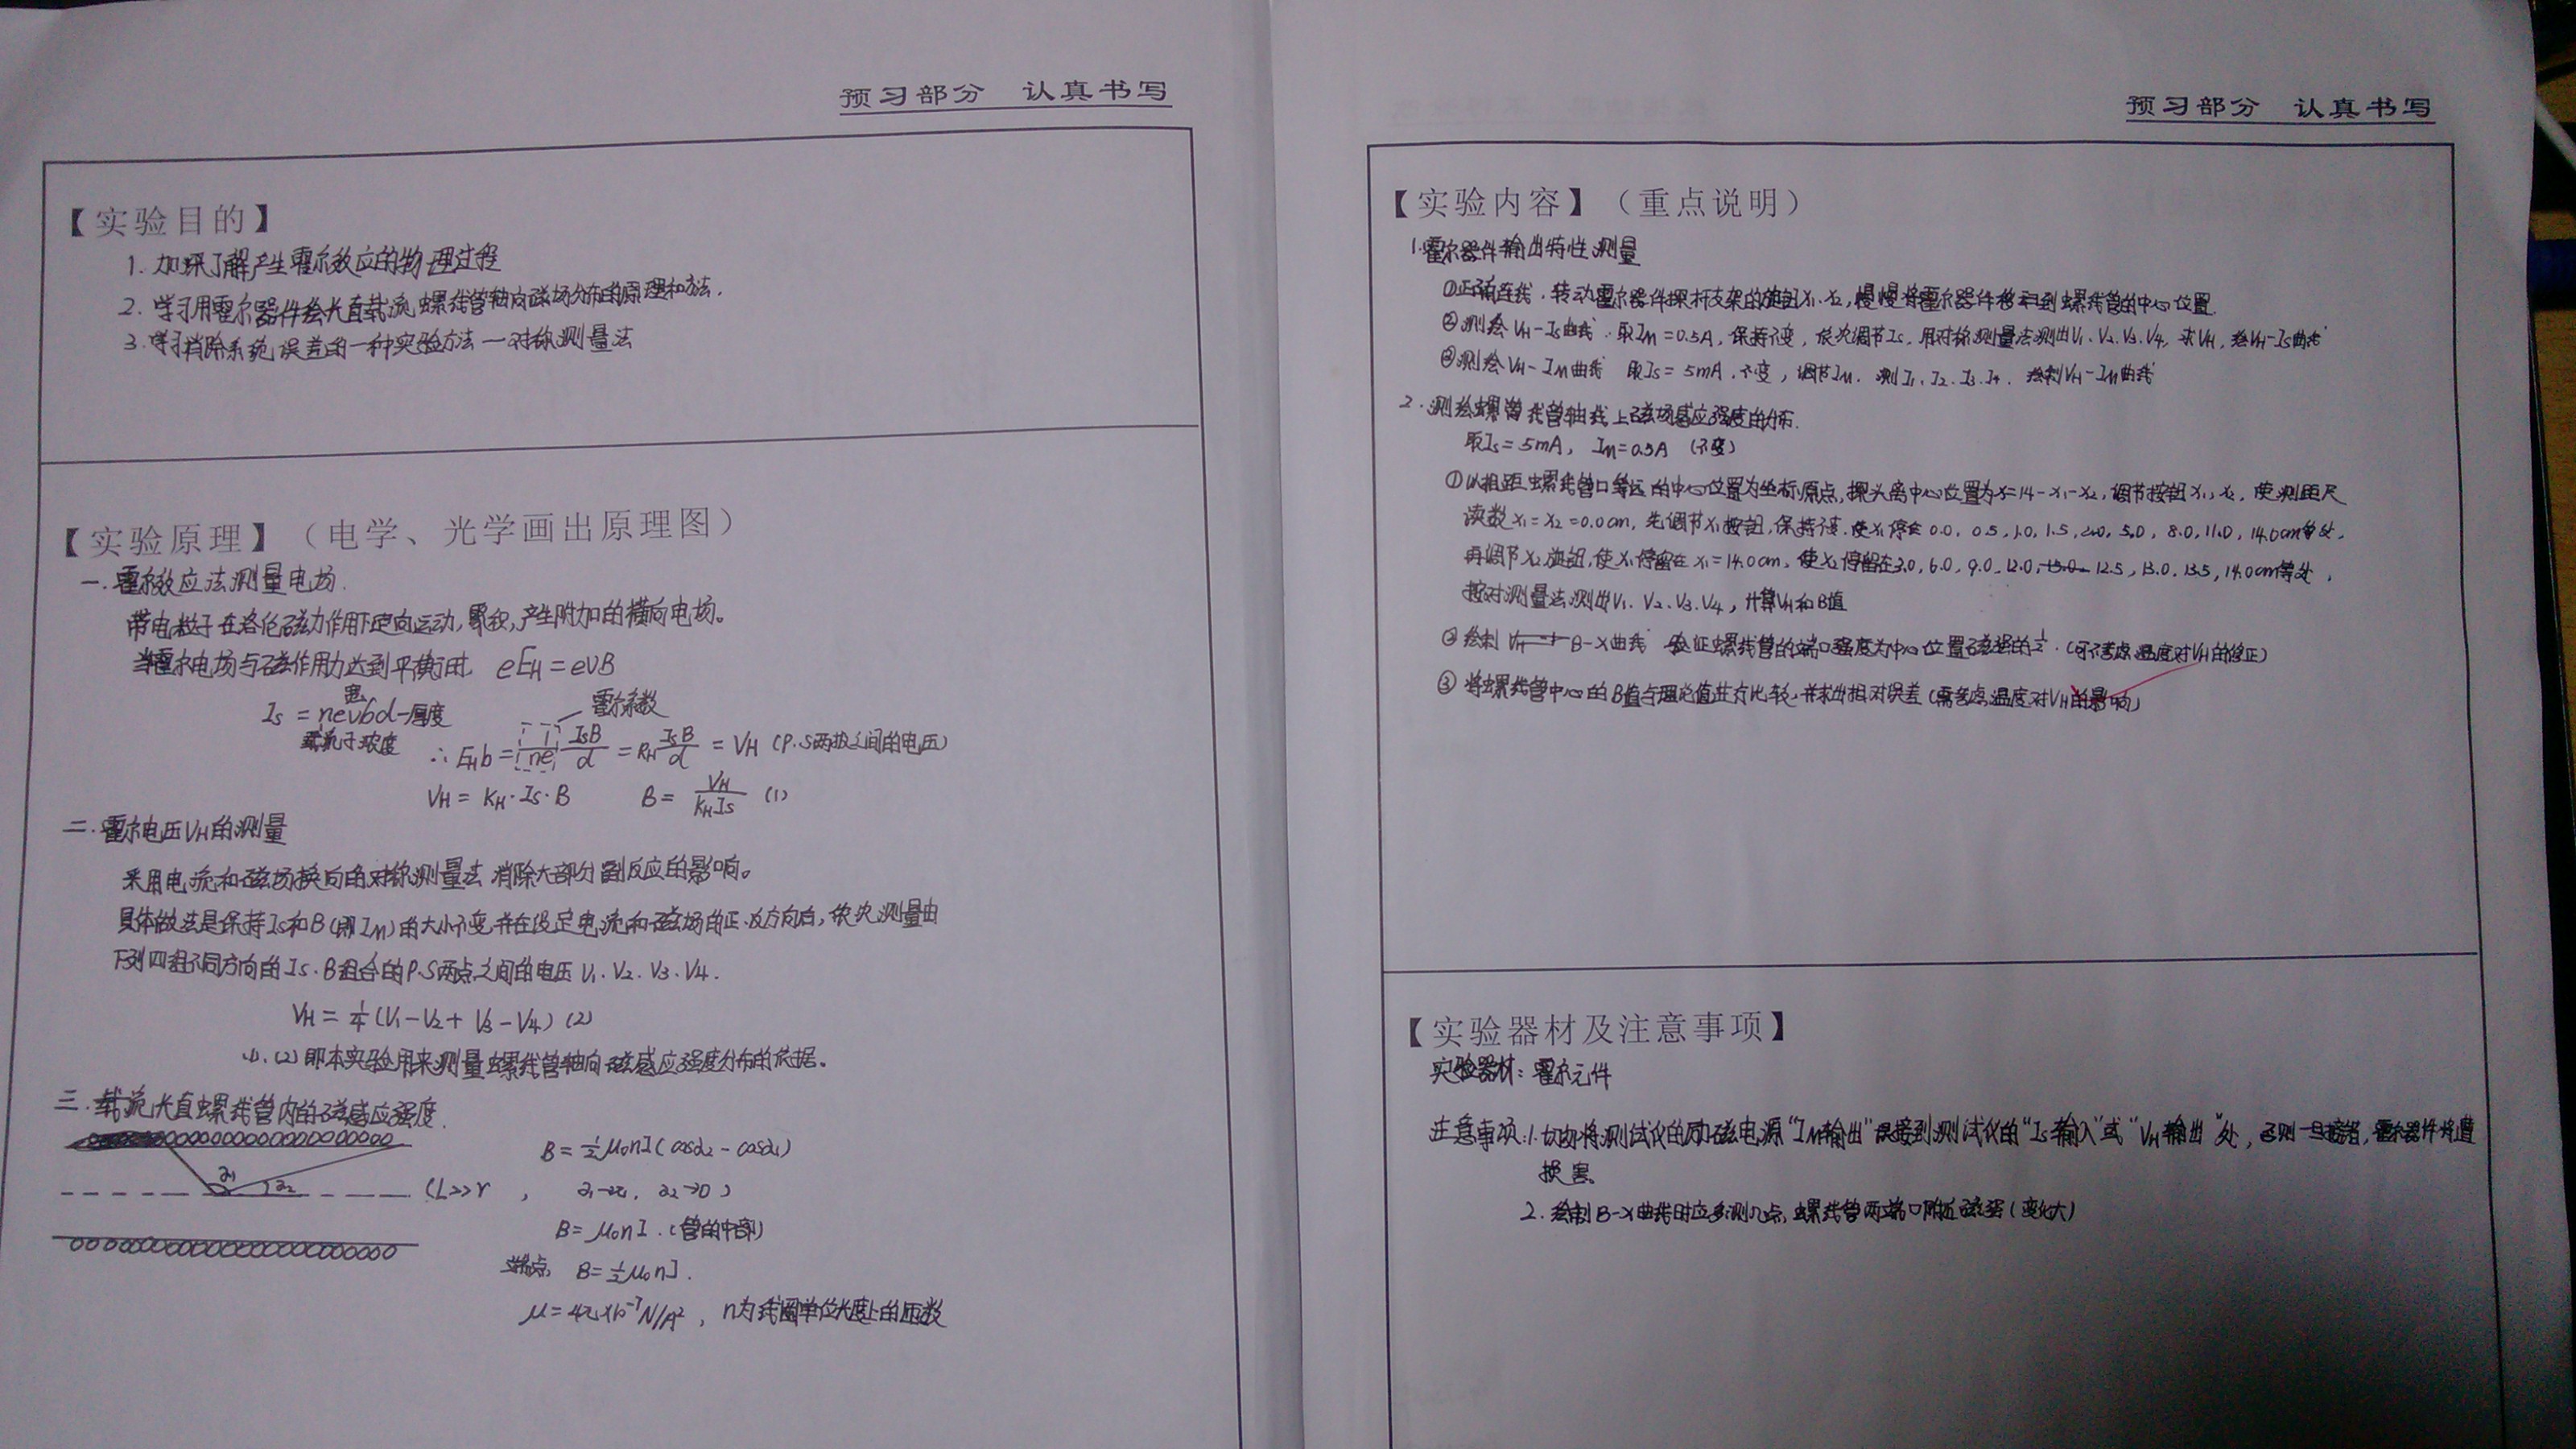 预习部分 认真书写
【实验目的】
1. 加深了解产生霍尔效应的物理过程
2. 学习用霍尔器件绘长直载流螺线管轴向磁场分布的原理和方法.
3. 学习消除系统误差的一种实验方法—对称测量法
【实验原理】（电学、光学画出原理图）
一. 霍尔效应法测量电场.
带电粒子在洛伦磁力作用下定向运动, 累积, 产生附加的横向电场。
当霍尔电场与磁作用力达到平衡时, eE_H = evB
宽
霍尔系数
I_s = nevbd - 厚度
载流子浓度
∴ E_H b = \frac{1}{ne} \frac{I_s B}{d} = R_H \frac{I_s B}{d} = V_H (P.S两极之间的电压)
V_H = K_H · I_s · B B = \frac{V_H}{K_H I_s} (1)
二. 霍尔电压V_H的测量
采用电流和磁场换向的对称测量法 消除大部分副反应的影响。
具体做法是保持I_s和B(即I_M)的大小不变,并在设定电流和磁场的正.反方向后, 依次测量由
下列四组不同方向的I_s.B组合的P.S两点之间的电压 V1. V2. V3. V4.
V_H = \frac{1}{4} (V1 - V2 + V3 - V4) (2)
(1). (2) 即本实验用来测量螺线管轴向磁感应强度分布的依据。
三. 载流长直螺线管内的磁感应强度.
B = \frac{1}{2}μ₀nI (cosα₂ - cosα₁)
α1 α2
(L>>r , α₁→π, α₂→0)
B = μ₀nI. (管的中部)
端点, B = \frac{1}{2}μ₀nI.
μ = 4π×10⁻⁷N/A², n为线圈单位长度上的匝数
预习部分 认真书写
【实验内容】（重点说明）
1. 霍尔器件输出特性测量
①正确连线. 转动霍尔器件探杆支架的旋钮X1. X2, 慢慢将霍尔器件移到螺线管的中心位置.
②测绘V_H-I_s曲线. 取I_M=0.5A, 保持不变, 依次调节I_s, 用对称测量法测出V1. V2. V3. V4, 求V_H, 绘V_H-I_s曲线
③测绘V_H-I_M曲线 取I_s=5mA.不变, 调节I_M. 测I1. I2. I3. I4. 绘制V_H-I_M曲线
2. 测绘螺线管轴线上磁场感应强度的分布.
取I_s=5mA, I_M=0.5A (不变)
①以相距螺线管口等远的中心位置为坐标原点, 探头离中心位置为X=14-X1-X2, 调节按钮X1, X2, 使测距尺
读数X1=X2=0.0cm, 先调节X1按钮, 保持不变. 使X1停在0.0, 0.5, 1.0, 1.5, 2.0, 5.0, 8.0, 11.0, 14.0cm等处,
再调节X2旋钮, 使X1停留在X1=14.0cm, 使X2停留在3.0, 6.0, 9.0, 12.0, 12.5, 13.0, 13.5, 14.0cm等处,
按对测量法测出V1. V2. V3. V4, 计算V_H和B值
②绘制 B-X曲线 验证螺线管的端口强度为中心位置磁强的\frac{1}{2}. (可不考虑温度对V_H的修正)
③将螺线管中心的B值与理论值进行比较, 并求出相对误差 (需考虑温度对V_H的影响)
【实验器材及注意事项】
实验器材: 霍尔元件
注意事项: 1. 切切将测试仪的励磁电源“I_M输出”误接到测试仪的“I_s输入”或“V_H输出”处, 否则一旦接错, 霍尔器件将遭
损害.
2. 绘制B-X曲线时应多测几点, 螺线管两端口附近磁强 (变化大)